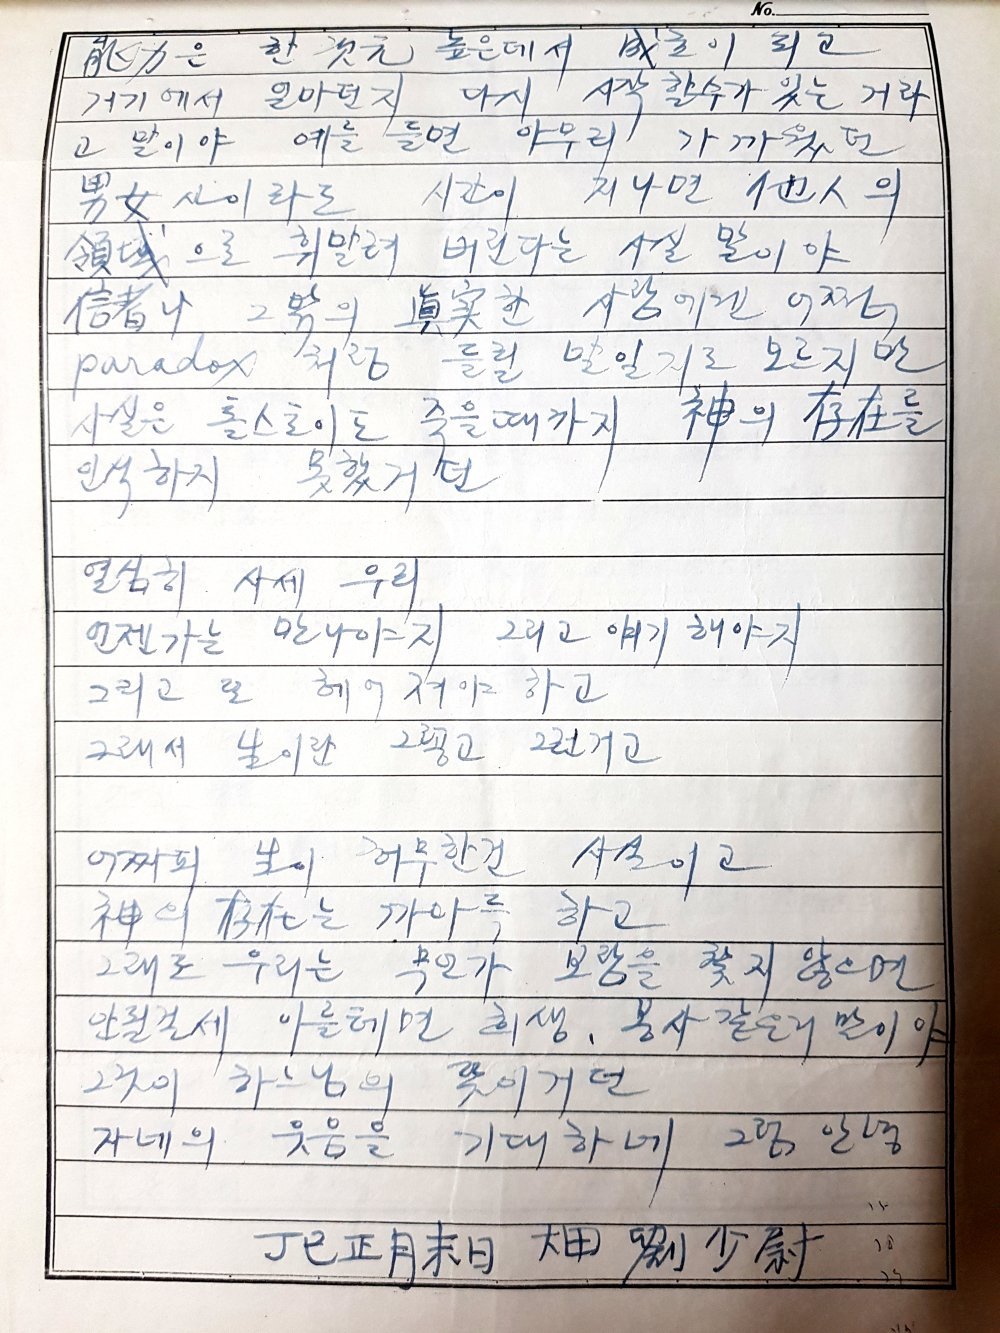 No.
能力은 한 次元 높은데서 成立이 되고
거기에서 얼마던지 다시 시작할수가 있는 거라
고 말이야 예를 들면 아무리 가까웠던
男女사이라도 시간이 지나면 他人의
領域으로 휘말려 버린다는 사실 말이야
信者나 그 의 眞実한 사람에겐 어쩜
paradox 처럼 들릴 말일지도 모르지만
사실은 톨스토이도 죽을때까지 神의 存在를
인식하지 못했거던
열심히 사세 우리
언젠가는 만나야지 그리고 얘기해야지
그리고 또 헤어져야 하고
그래서 生이란 그렇고 그런거고
어짜피 生이 허무한건 사실이고
神의 存在는 까마득 하고
그래도 우리는 무언가 보람을 찾지 않으면
안될걸세 아를테면 희생, 봉사같은거 말이야
그것이 하느님의 뜻이거던
자네의 웃음을 기대하네 그럼 안녕
丁巳正月末日 大田 劉少尉